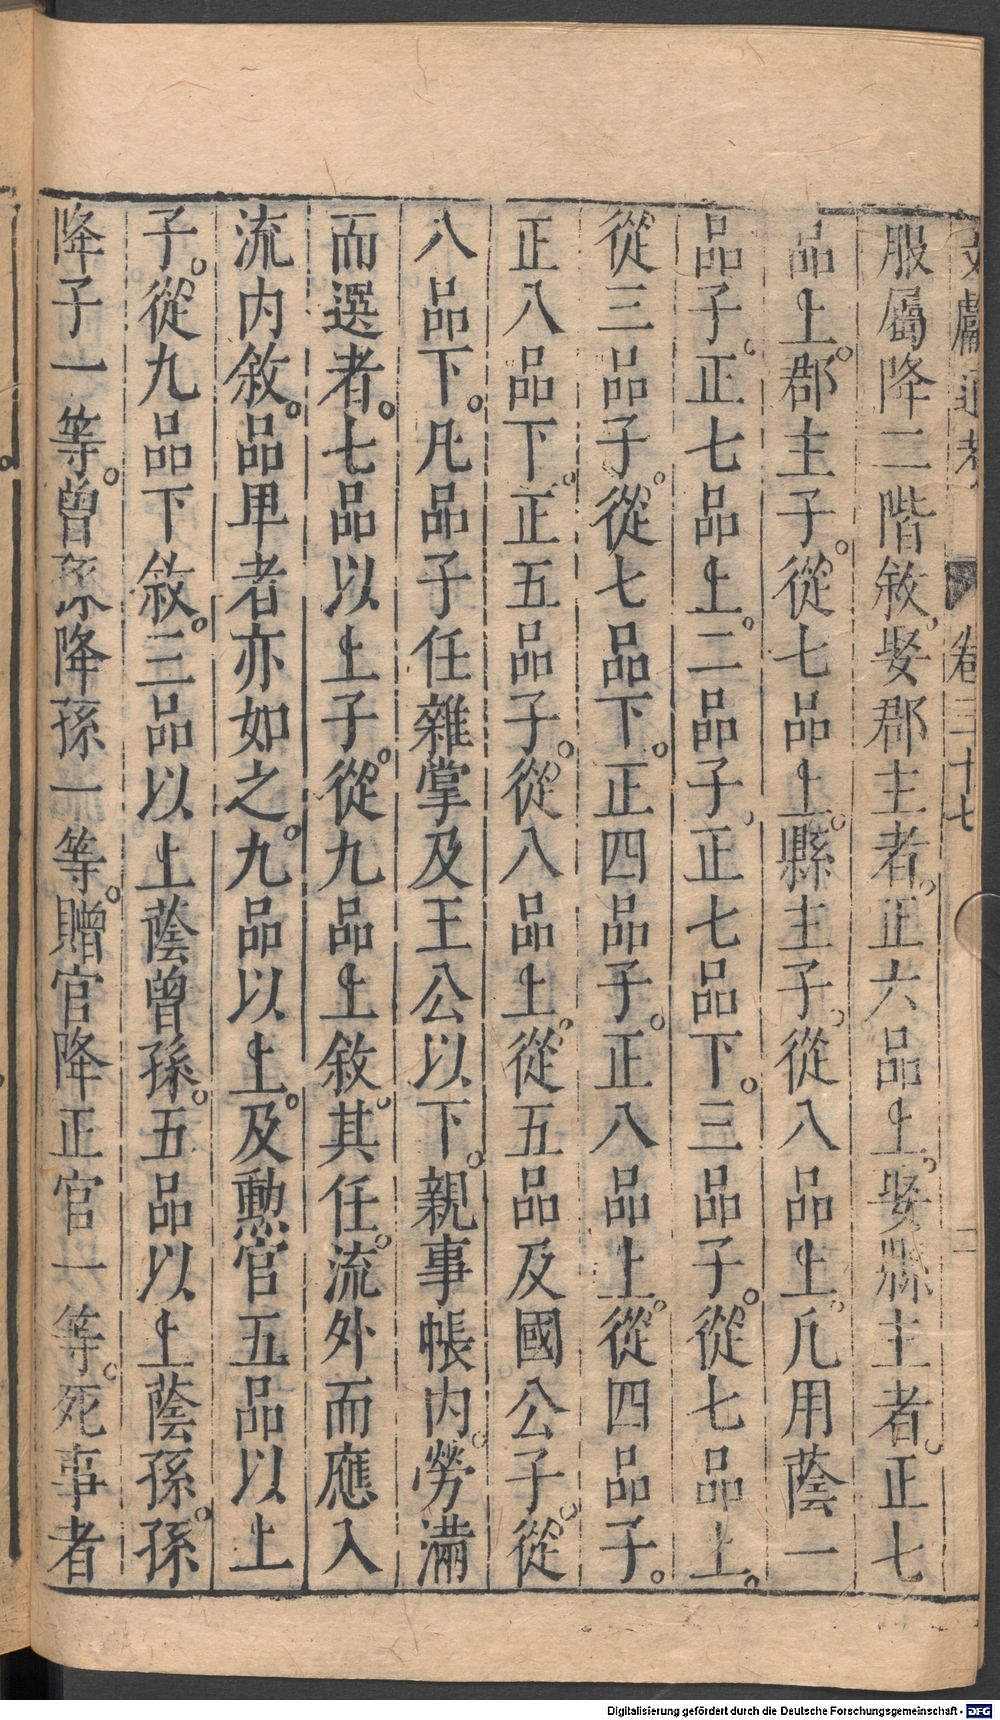 文獻通考 卷三十七 二
服屬降二階敘。娶郡主者。正六品上。娶縣主者。正七
品上。郡主子。從七品上。縣主子。從八品上。凡用蔭一
品子。正七品上。二品子。正七品下。三品子。從七品上。
從三品子。從七品下。正四品子。正八品上。從四品子。
正八品下。正五品子。從八品上。從五品及國公子。從
八品下。凡品子任雜掌及王公以下。親事帳内。勞滿
而選者。七品以上子。從九品上敘。其任。流外而應入
流内敘。品卑者亦如之。九品以上。及勲官五品以上
子。從九品下敘。三品以上蔭曾孫。五品以上蔭孫。孫
降子一等。曾孫降孫一等。贈官降正官一等。死事者
Digitalisierung gefördert durch die Deutsche Forschungsgemeinschaft - DFG